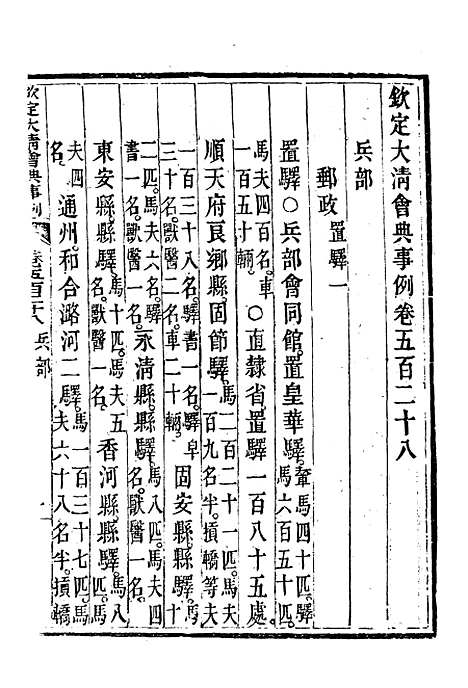 欽定大清會典事例卷五百二十八
兵部
郵政 置驛一
置驛〇兵部會同館置皇華驛輦馬四十匹驛馬六百五十匹
馬夫四百名車一百五十輛〇直隸省置驛一百八十五處
順天府良鄉縣固節驛馬二百二十一匹馬夫一百九名半摃轎等夫
一百三十八名驛書一名驛皁三十名獸醫二名車二十輛固安縣縣驛馬十
二匹馬夫六名書一名獸醫一名永清縣縣驛馬八匹馬夫四名獸醫一名
東安縣縣驛馬十匹馬夫五名獸醫一名香河縣縣驛馬八匹馬
夫四名通州和合潞河二驛馬一百三十七匹馬夫六十八名半摃轎
欽定大清會典事例 卷五百二十八 兵部 一